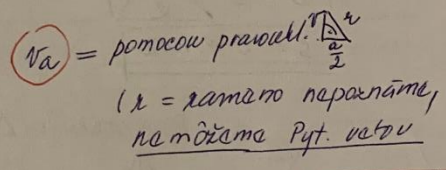 va = pomocou pravouhl. v r
a
2
(r = rameno nepoznáme,
nemôžeme Pyt. vetou